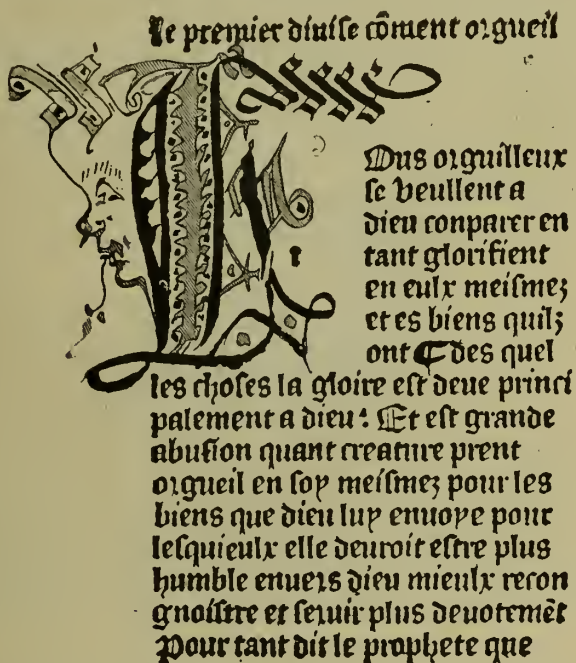 Le premier diuiſe cōment orgueil
TOus orguilleux
ſe veullent a
dieu conparer en
tant glorifient
en eulx meiſmez
et es biens quilz
ont ¶ Des quel
les choſes la gloire eſt deue princi
palement a dieu: Et eſt grande
abuſion quant creature prent
orgueil en ſoy meiſmez pour les
biens que dieu luy enuoye pour
leſquieulx elle deuroit eſtre plus
humble enuers dieu mieulx recon
gnoiſtre et ſeruir plus deuotemēt
Pour tant dit le prophete que